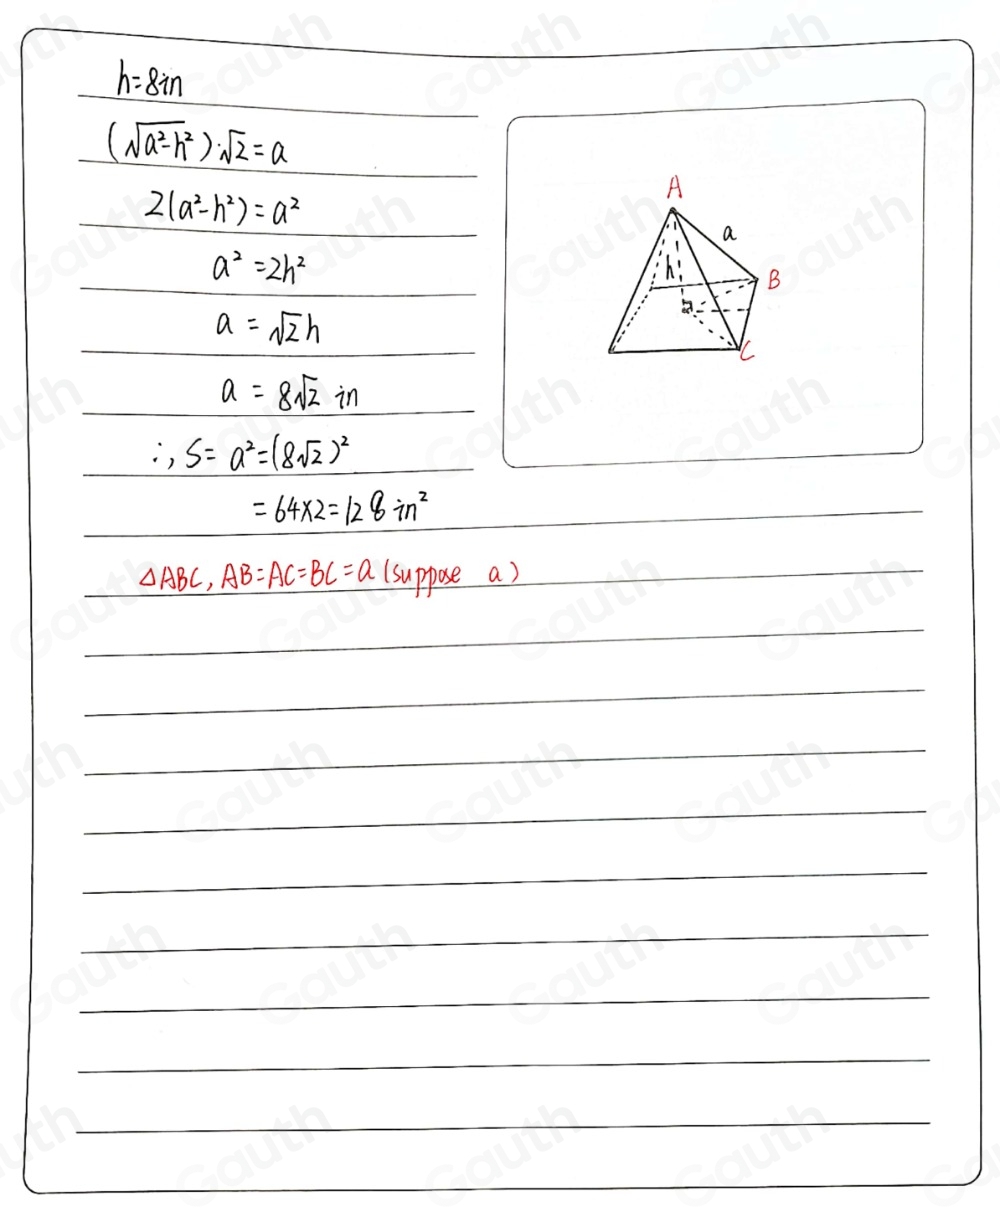 h=8in
(√a²-h²)·√2=a
2(a²-h²)=a²
a²=2h²
a=√2h
a=8√2 in
∴, S=a²=(8√2)²
=64×2=128in²
△ABC, AB=AC=BC=a (suppose a)
A
a
h
B
C
Gauth